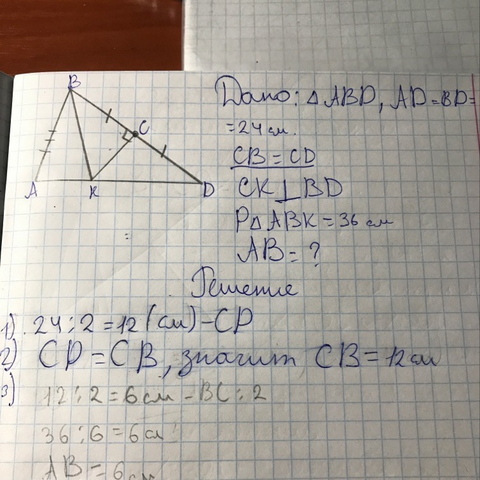 B
C
A
K
D
Дано: △ABD, AD=BD=
=24 см.
CB = CD
CK⊥BD
P△ABK = 36 см
AB = ?
Решение
1) 24:2=12 (см) – CD
2) CD = CB, значит CB = 12 см
3) 12:2=6 см – BC:2
36:6=6 см
AB = 6 см